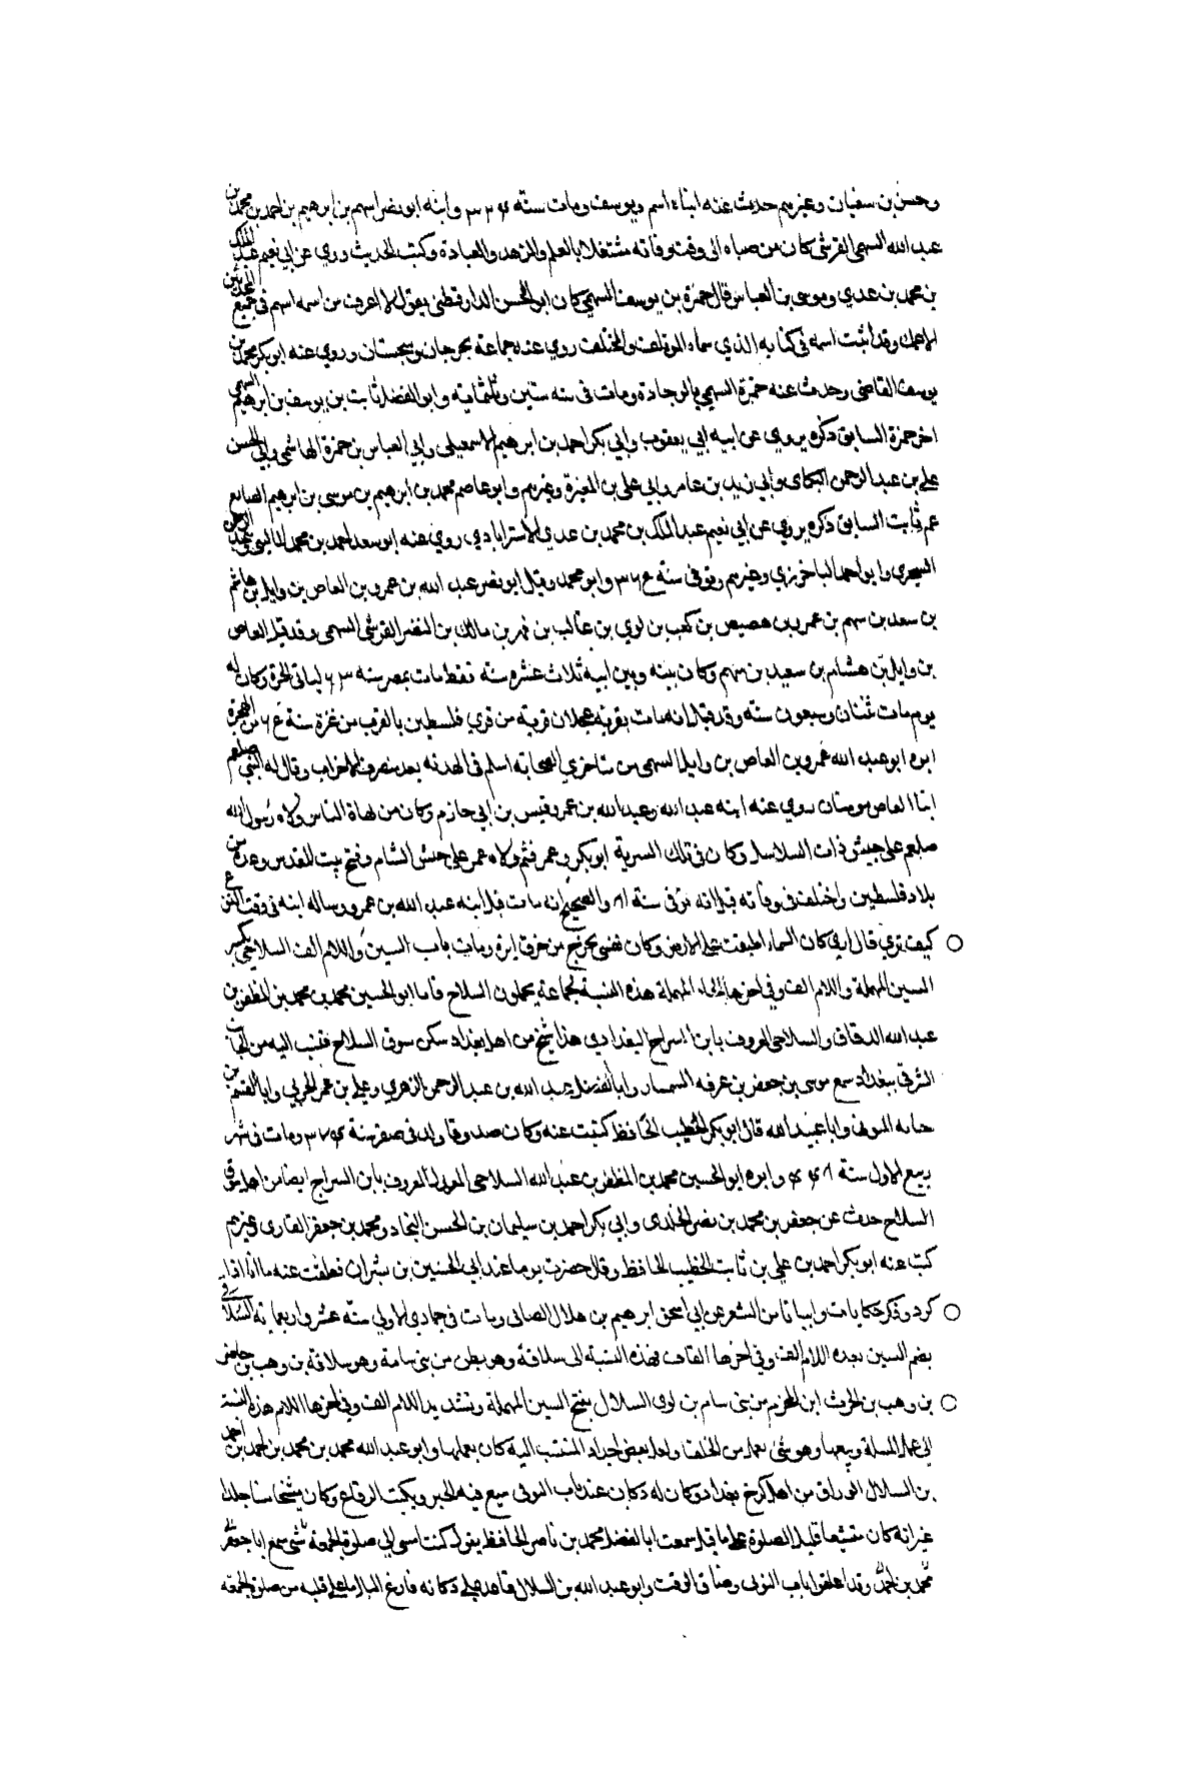 وحسن بن سفيان وغيرهم حدث عنه ابناء اسهم ويوسف ومات سنة وابنه ابو نصر اسهم بن ابرهيم بن احمد بن محمد بن
عبد الله السهمي القرشي كان من صباه الى وقت وفاته مشتغلا بالعلم والزهد والعبادة وكتب الحديث وروي عن ابي نعيم عبد الملك
بن محمد بن عدي وموسى بن العباس قال حمزة بن يوسف السهمي كان ابو الحسن الدارقطني يقول لا اعرف من اسمه اسهم في جميع المحدثين
الا عمك وقد اثبت اسمه في كتابه الذي سماه المؤتلف والمختلف روي عنه جماعة بجرجان وسجستان وروي عنه ابو بكر محمد بن
يوسف القاضي وحدث عنه حمزة السهمي بالوجادة ومات في سنه ستين وثلثمايه وابو الفضل ثابت بن يوسف بن ابرهيم السهمي
اخو حمزة السابق ذكره يروي عن ابيه ابي يعقوب وابي بكر احمد بن ابرهيم الاسمعيلي وابي العباس بن حمزة الهاشمي وابي الحسن
علي بن عبد الرحمن البكاي وابي زيد بن عامر وابي علي بن المغيرة وغيرهم وابو عاصم محمد بن ابرهيم بن موسى بن ابرهيم الصايع
عم ثابت السابق ذكره يروي عن ابي نعيم عبد الملك بن محمد بن عدي الاسترابادي روي عنه ابو سعد احمد بن محمد الماليني وعبد الرحمن
السجزي وابو احمد الباخرزي وغيرهم وتوفى سنة وابو محمد وقيل ابو نصر عبد الله بن عمرو بن العاص بن وايل بن هاشم
بن سعد بن سهم بن عمرو بن هصيص بن كعب بن لوي بن غالب بن فهر بن مالك بن النضر القرشي السهمي وقد قيل العاص
بن وايل بن هشام بن سعيد بن سهم وكان بينه وبين ابيه ثلاث عشره سنة فقط مات بمصر سنه ليالي الحرة وكان له
يوم مات ثنتان وسبعون سنة وقد قيل انه مات بقرية عجلان قرية من قري فلسطين بالقرب من غزة سنة من الهجرة
ابوه ابو عبد الله عمرو بن العاص بن وايل السهمي من متاخري الصحابة اسلم في الهدنه بعد منصرف الاحزاب وقال له النبي صلعم
ابنا العاص مومنان روي عنه ابنه عبد الله وعبد الله بن عمر وقيس بن ابي حازم وكان من دهاة الناس ولاه رسول الله
صلعم على جيش ذات السلاسل وكان في تلك السرية ابو بكر وعمر فثم ولاه عمر على جيش الشام وفتح بيت المقدس وعدة من
بلاد فلسطين واختلف في وفاته قيل انه توفى سنة والصحيح انه مات قبل ابنه عبد الله بن عمرو وساله ابنه في وقت النزع
كيف تري قال اري كان السماء اطبقت على الارض وكان نفسي يخرج من خرق ابرة ومات باب السين واللام الف السلاحي بكسر
السين المهملة واللام الف وفي اخرها الحاء المهملة هذه النسبة لجماعة يحملون السلاح فاما ابو الحسين محمد بن محمد بن المظفر بن
عبد الله الدقاق والسلاحي المعروف بابن السراج البغدادي هذا شيخ من اهل بغداد سكن سوق السلاح فنسب اليه من الجانب
الشرقي ببغداد سمع موسى بن جعفر بن عرفه السمسار وابا الفضل عبيد الله بن عبد الرحمن الزهري وعلي بن عمر الحربي وابا القسم بن
وابا عبيد الله قال ابو بكر الخطيب الحافظ كتبت عنه وكان صدوقا ولد في صفر سنة ومات في شهر
ربيع الاول سنة وابوه ابو الحسين محمد بن المظفر بن عبد الله السلاحي المعدل المعروف بابن السراج ايضا من اهل سوق
السلاح حدث عن جعفر بن محمد بن نصر الخلدى وابي بكر احمد بن سليمان بن الحسن النجاد ومحمد بن جعفر القارى وغيرهم
كتب عنه ابو بكر احمد بن علي بن ثابت الخطيب الحافظ وقال حضرت يوما عند ابي الحسين بن بشران فعلقت عنه
وذكر حكايات وابياتا من الشعر عن ابي اسحق ابرهيم بن هلال الصابي ومات في جمادي الاولي سنة عشر واربعماية السلافي
بضم السين بعده اللام الف وفي اخرها القاف هذه النسبة الى سلاقة وهو بطن من بني سامة وهو سلاقة بن وهب بن حاضر
بن وهب بن الحرث ابن الخزم من بني سام بن لوي السلال بفتح السين المهملة وتشديد اللام الف وفي اخرها اللام هذه النسبة
الى عمل السلة وبيعها وهو شي يعمل من الخلفا ولعل بعض اجداد المنتسب اليه كان يعملها وابو عبد الله محمد بن محمد بن احمد بن احمد
بن السلال الوراق من اهل كرخ بغداد وكان له دكان عند باب النوبي يبيع فيه الحبر ويكتب الرقاع وكان شيخا مسنا جلدا
غير انه كان متشيعا قليل الصلوة على ما قيل سمعت ابا الفضل محمد بن ناصر الحافظ يقول كنت امسي الى صلوة الجمعة سمع ابا جعفر
محمد بن احمد وقد اغلقوا باب النوبي وضاق الوقت وابو عبد الله بن السلال قاعد على دكانه فارغ البال ما على قلبه من صلوة الجمعة